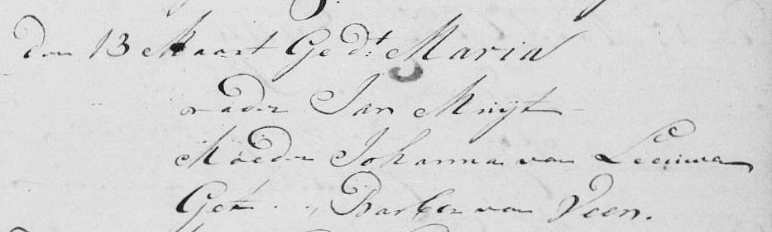 den 13 Maart Ged:t Maria
vader Jan Muijt
Moeder Johanna van Leeuwe
Get: Barber van Veen.